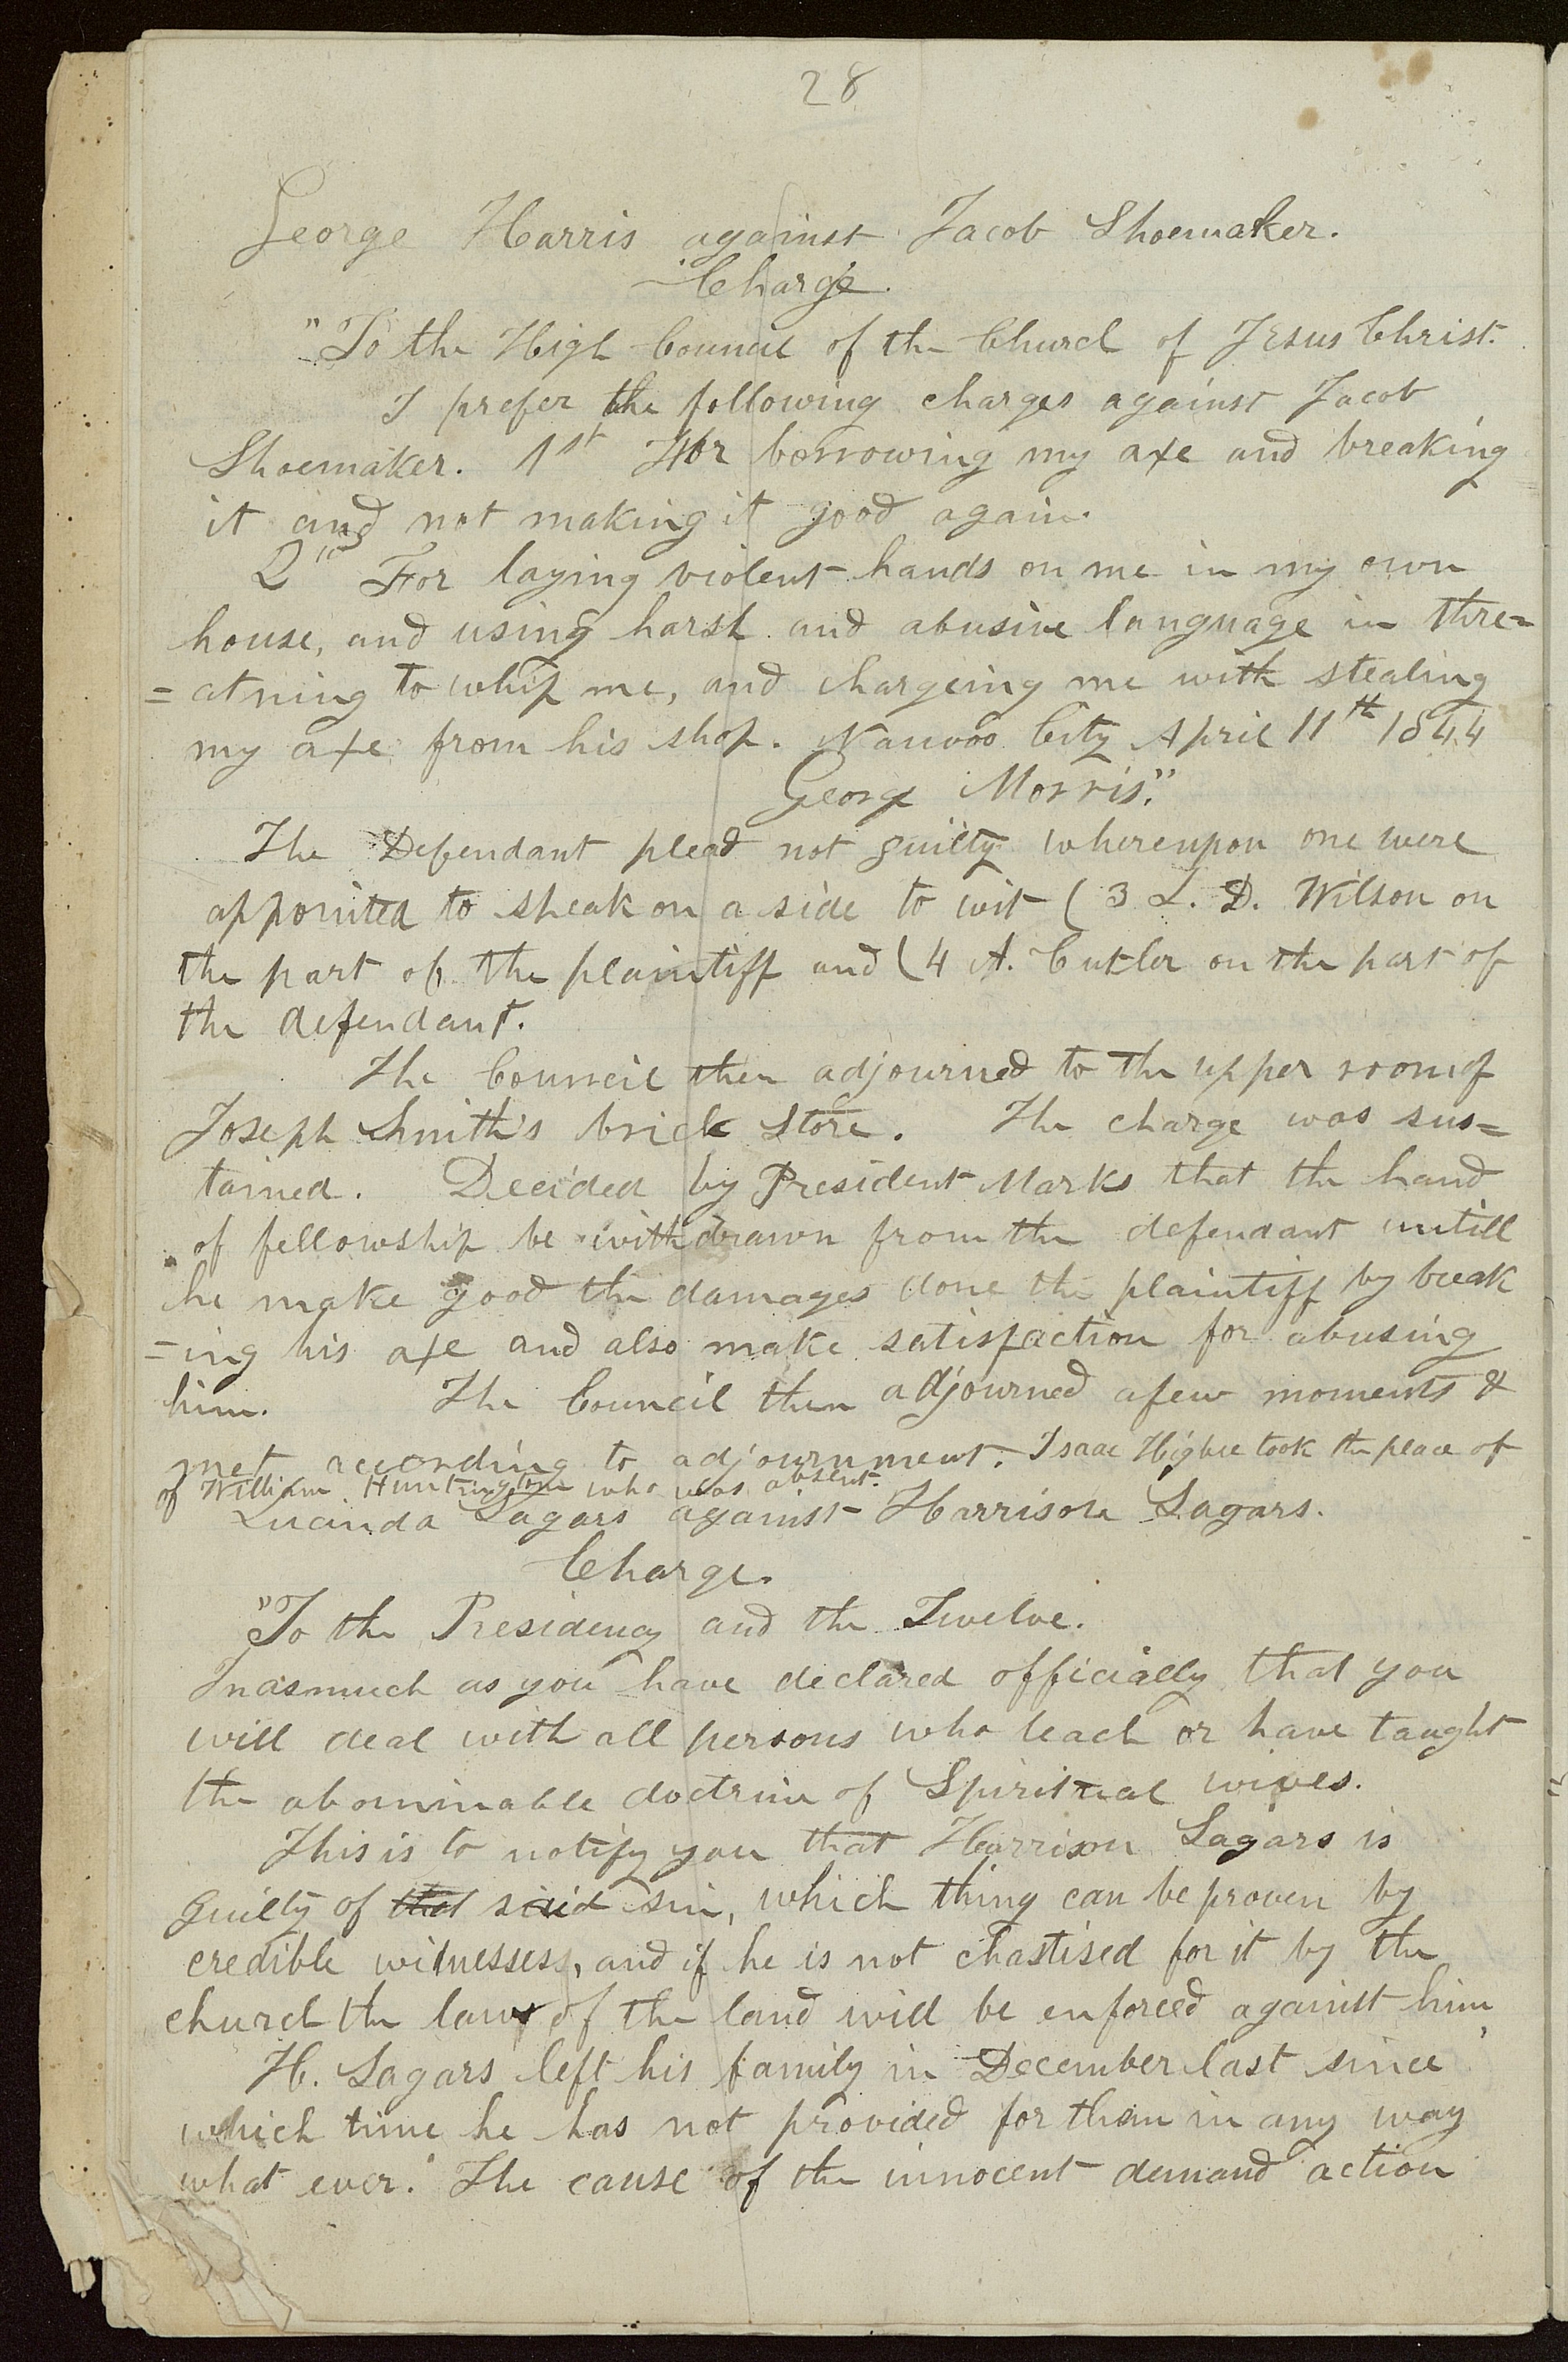 28
George Harris against Jacob Shoemaker.
Charge.
"To the High Council of the Church of Jesus Christ.
I prefer the following charges against Jacob
Shoemaker. 1st For borrowing my axe and breaking
it and not making it good again.
2nd For laying violent hands on me in my own
house, and using harsh and abusive language in thre=
=atning to whip me, and chargeing me with stealing
my axe from his shop. Nauvoo City April 11th 1844
George Morris."
The Defendant plead not guilty whereupon one were
appointed to speak on a side to wit (3 L. D. Wilson on
the part of the plaintiff and (4 A. Cutler on the part of
the defendant.
The Council then adjourned to the upper room of
Joseph Smith's brick store. The charge was sus=
tained. Decided by President Marks that the hand
of fellowship be withdrawn from the defendant untill
he make good the damages done the plaintiff by break
=ing his axe and also make satisfaction for abusing
him. The Council then adjourned a few moments &
met according to adjournment. Isaac Higbee took the place of
of William Huntington who was absent.
Lucinda Sagars against Harrison Sagars.
Charge.
"To the Presidency and the Twelve.
Inasmuch as you have declared officially that you
will deal with all persons who teach or have taught
the abominable doctrine of Spiritual wives.
This is to notify you that Harrison Sagars is
guilty of that said sin, which thing can be proven by
credible witnessess, and if he is not chastised for it by the
church the laws of the land will be enforced against him,
H. Sagars left his family in December last since
which time he has not provided for them in any way
what ever. The cause of the innocent demand action